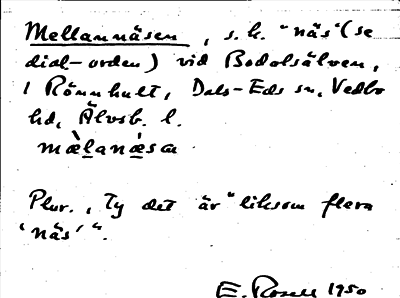 Mellannäsen, s.k. "näs" (se
dial-orden) vid Bodolsälven,
i Rönnhult, Dals-Eds sn, Vedbo
hd, Älvsb. l.
mæ̀lanæ̀sa
Plur., Ty det är "liksom flera
'näs'".
E. Rosell 1950